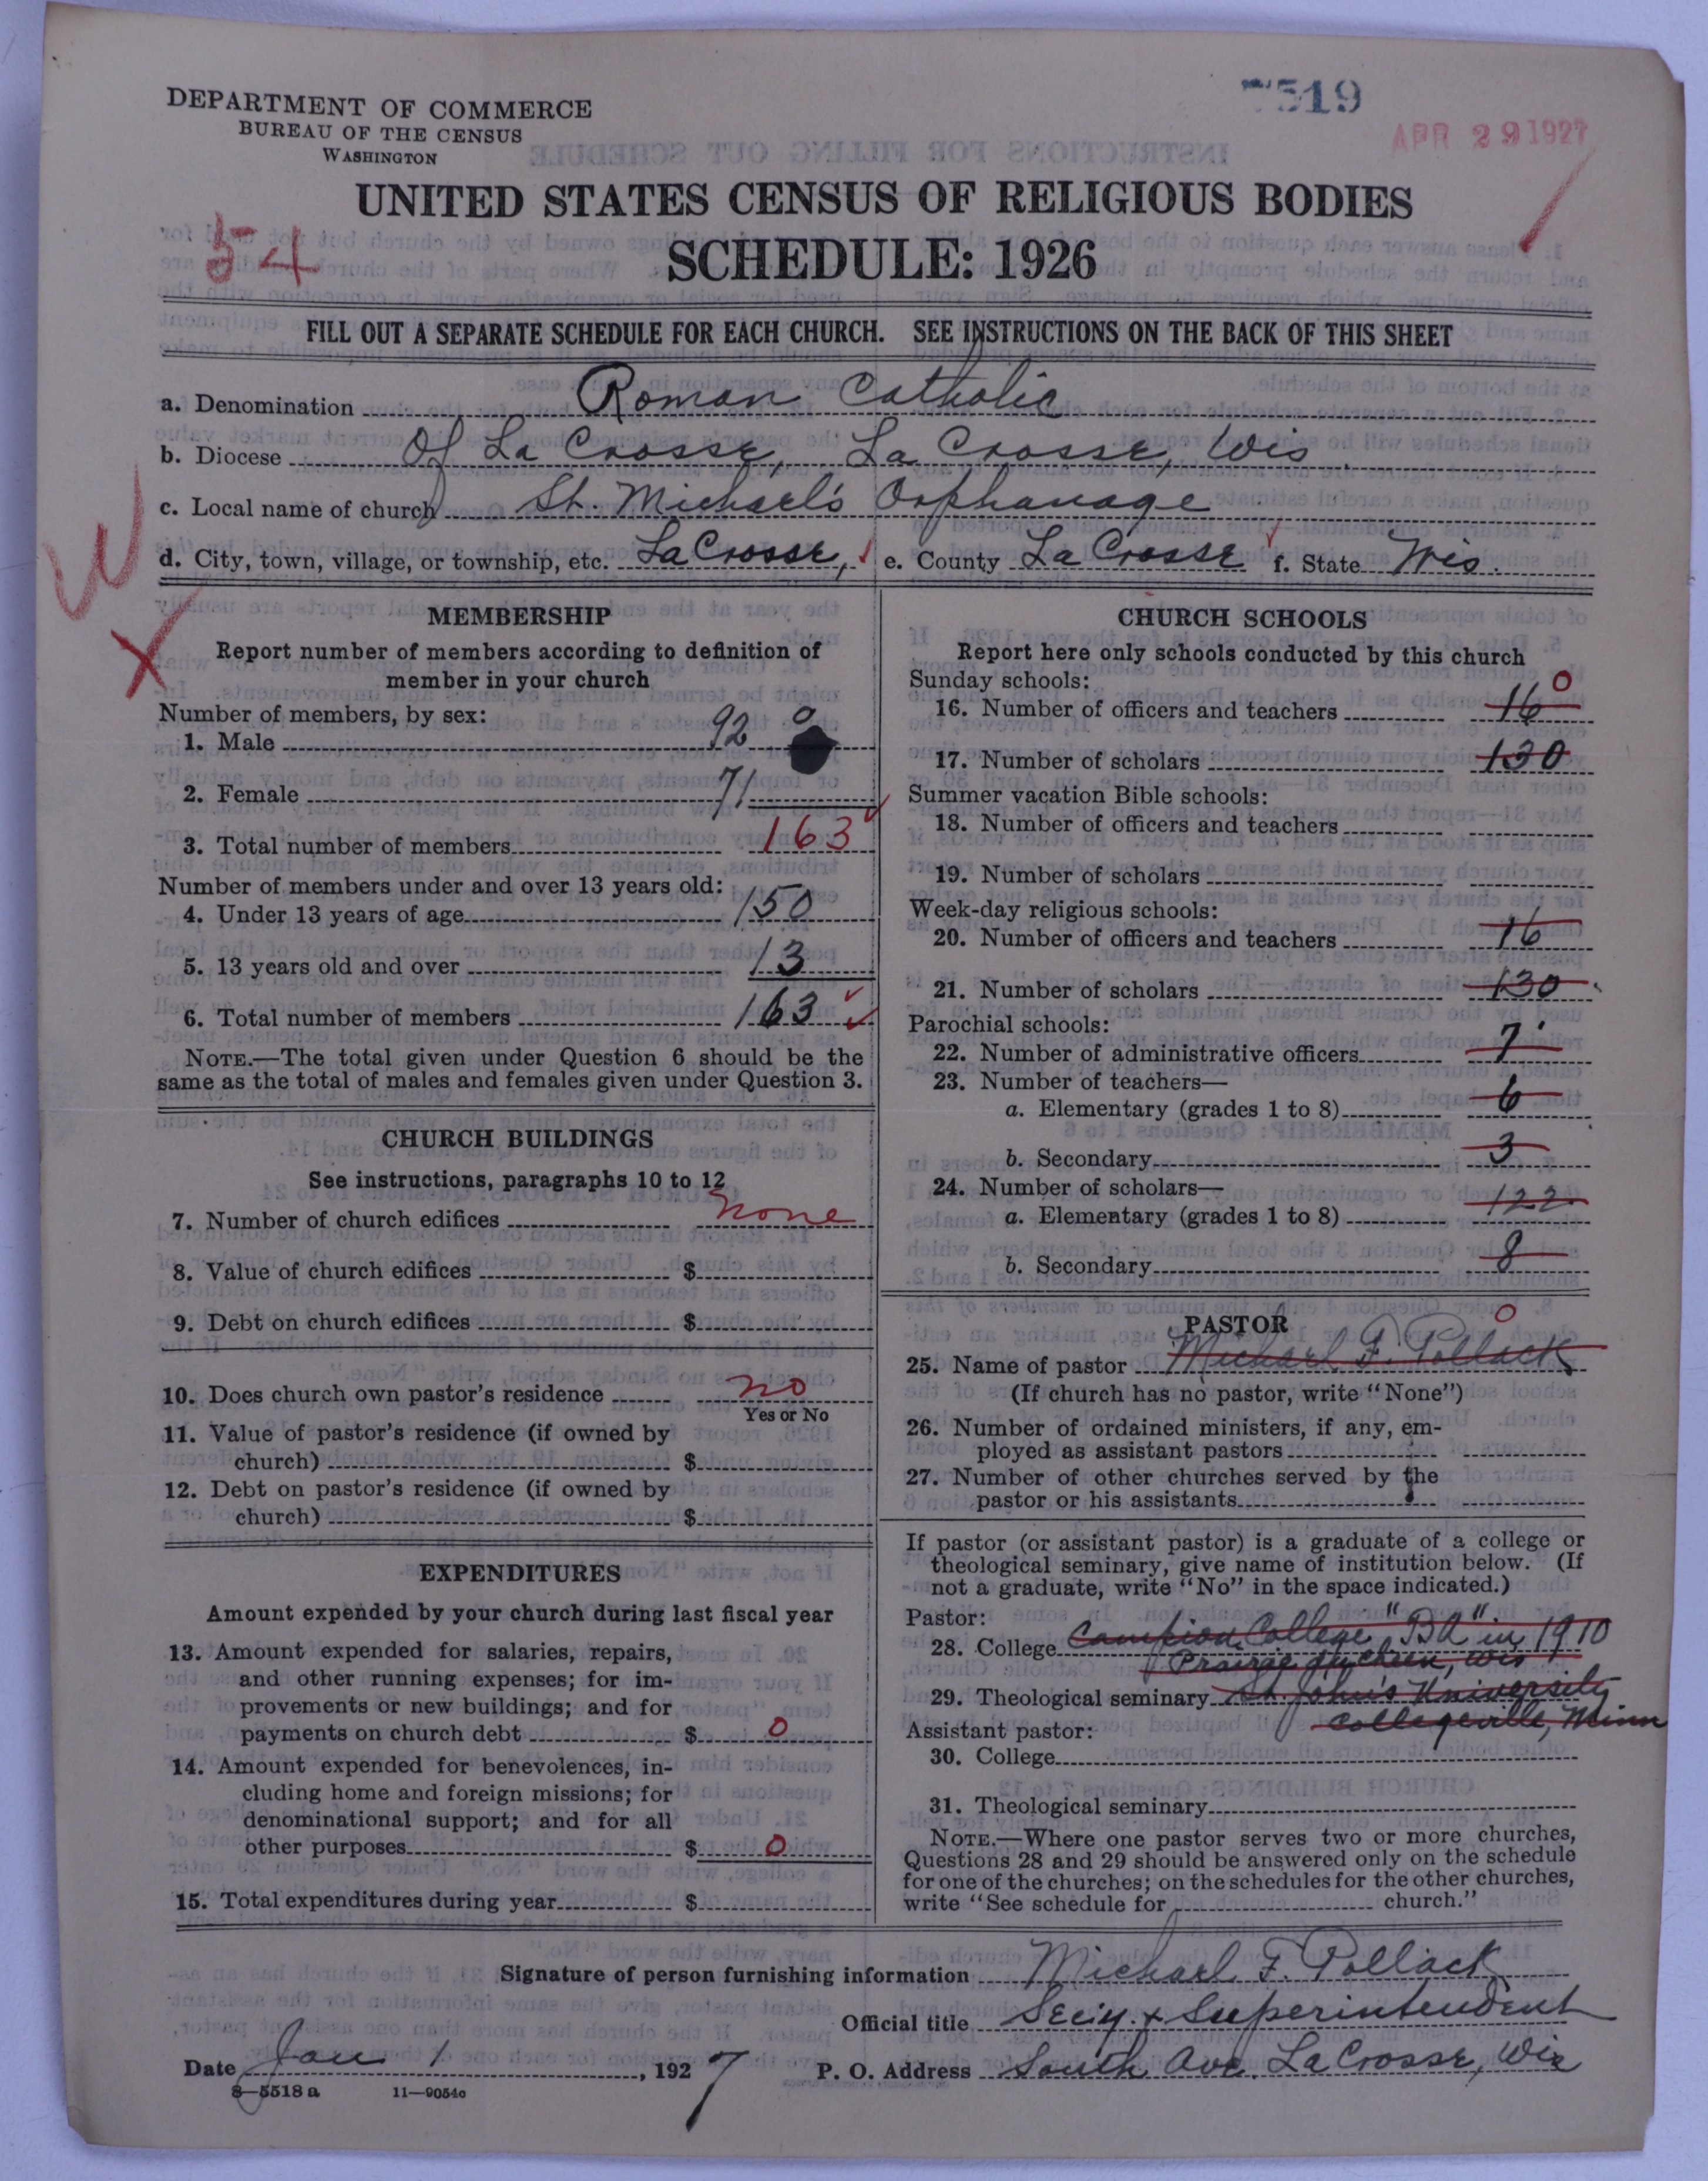 DEPARTMENT OF COMMERCE
BUREAU OF THE CENSUS
WASHINGTON
7519
APR 29 1927
UNITED STATES CENSUS OF RELIGIOUS BODIES
54
SCHEDULE: 1926
FILL OUT A SEPARATE SCHEDULE FOR EACH CHURCH. SEE INSTRUCTIONS ON THE BACK OF THIS SHEET
a. Denomination Roman Catholic
b. Diocese Of La Crosse, La Crosse, Wis.
c. Local name of church St. Michael's Orphanage
d. City, town, village, or township, etc. La Crosse, e. County La Crosse f. State Wis.
W
X
MEMBERSHIP
Report number of members according to definition of
member in your church
Number of members, by sex:
1. Male 92 0
2. Female 71
3. Total number of members 163
Number of members under and over 13 years old:
4. Under 13 years of age 150
5. 13 years old and over 13
6. Total number of members 163
NOTE.—The total given under Question 6 should be the
same as the total of males and females given under Question 3.
CHURCH BUILDINGS
See instructions, paragraphs 10 to 12
7. Number of church edifices none
8. Value of church edifices $
9. Debt on church edifices $
10. Does church own pastor's residence no
Yes or No
11. Value of pastor's residence (if owned by
church) $
12. Debt on pastor's residence (if owned by
church) $
EXPENDITURES
Amount expended by your church during last fiscal year
13. Amount expended for salaries, repairs,
and other running expenses; for im-
provements or new buildings; and for
payments on church debt $ 0
14. Amount expended for benevolences, in-
cluding home and foreign missions; for
denominational support; and for all
other purposes $ 0
15. Total expenditures during year $
CHURCH SCHOOLS
Report here only schools conducted by this church
Sunday schools:
16. Number of officers and teachers 16 0
17. Number of scholars 130
Summer vacation Bible schools:
18. Number of officers and teachers
19. Number of scholars
Week-day religious schools:
20. Number of officers and teachers 16
21. Number of scholars 130
Parochial schools:
22. Number of administrative officers 7
23. Number of teachers—
a. Elementary (grades 1 to 8) 6
b. Secondary 3
24. Number of scholars—
a. Elementary (grades 1 to 8) 122
b. Secondary 8
PASTOR 0
25. Name of pastor Michael F. Pollack
(If church has no pastor, write "None")
26. Number of ordained ministers, if any, em-
ployed as assistant pastors
27. Number of other churches served by the
pastor or his assistants
If pastor (or assistant pastor) is a graduate of a college or
theological seminary, give name of institution below. (If
not a graduate, write "No" in the space indicated.)
Pastor:
28. College Campion College "BA" in 1910
Prairie du Chien, Wis
29. Theological seminary St. John's University
Collegeville, Minn
Assistant pastor:
30. College
31. Theological seminary
NOTE.—Where one pastor serves two or more churches,
Questions 28 and 29 should be answered only on the schedule
for one of the churches; on the schedules for the other churches,
write "See schedule for church."
Signature of person furnishing information Michael F. Pollack
Official title Sec'y. & Superintendent
Date Jan 1, 1927 P. O. Address South Ave. La Crosse, Wis
8—5518 a 11—9054c